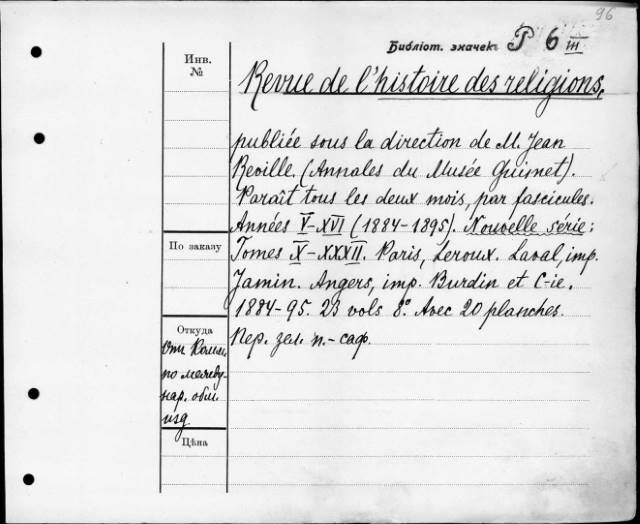 96
Библіот. значекъ P 6 III
Инв. №
Revue de l'histoire des religions,
publiée sous la direction de M. Jean
Reville. (Annales du Musée Guimet).
Paraît tous les deux mois, par fascicules.
Années V-XVI (1884-1895). Nouvelle série:
По заказу
Tomes X-XXXII. Paris, Leroux. Laval, imp.
Jamin. Angers, imp. Burdin et C-ie.
1884-95. 23 vols 8º. Avec 20 planches.
Пер. зел. п.-саф.
Откуда
От Комис.
по между-
нар. обм.
изд
Цѣна